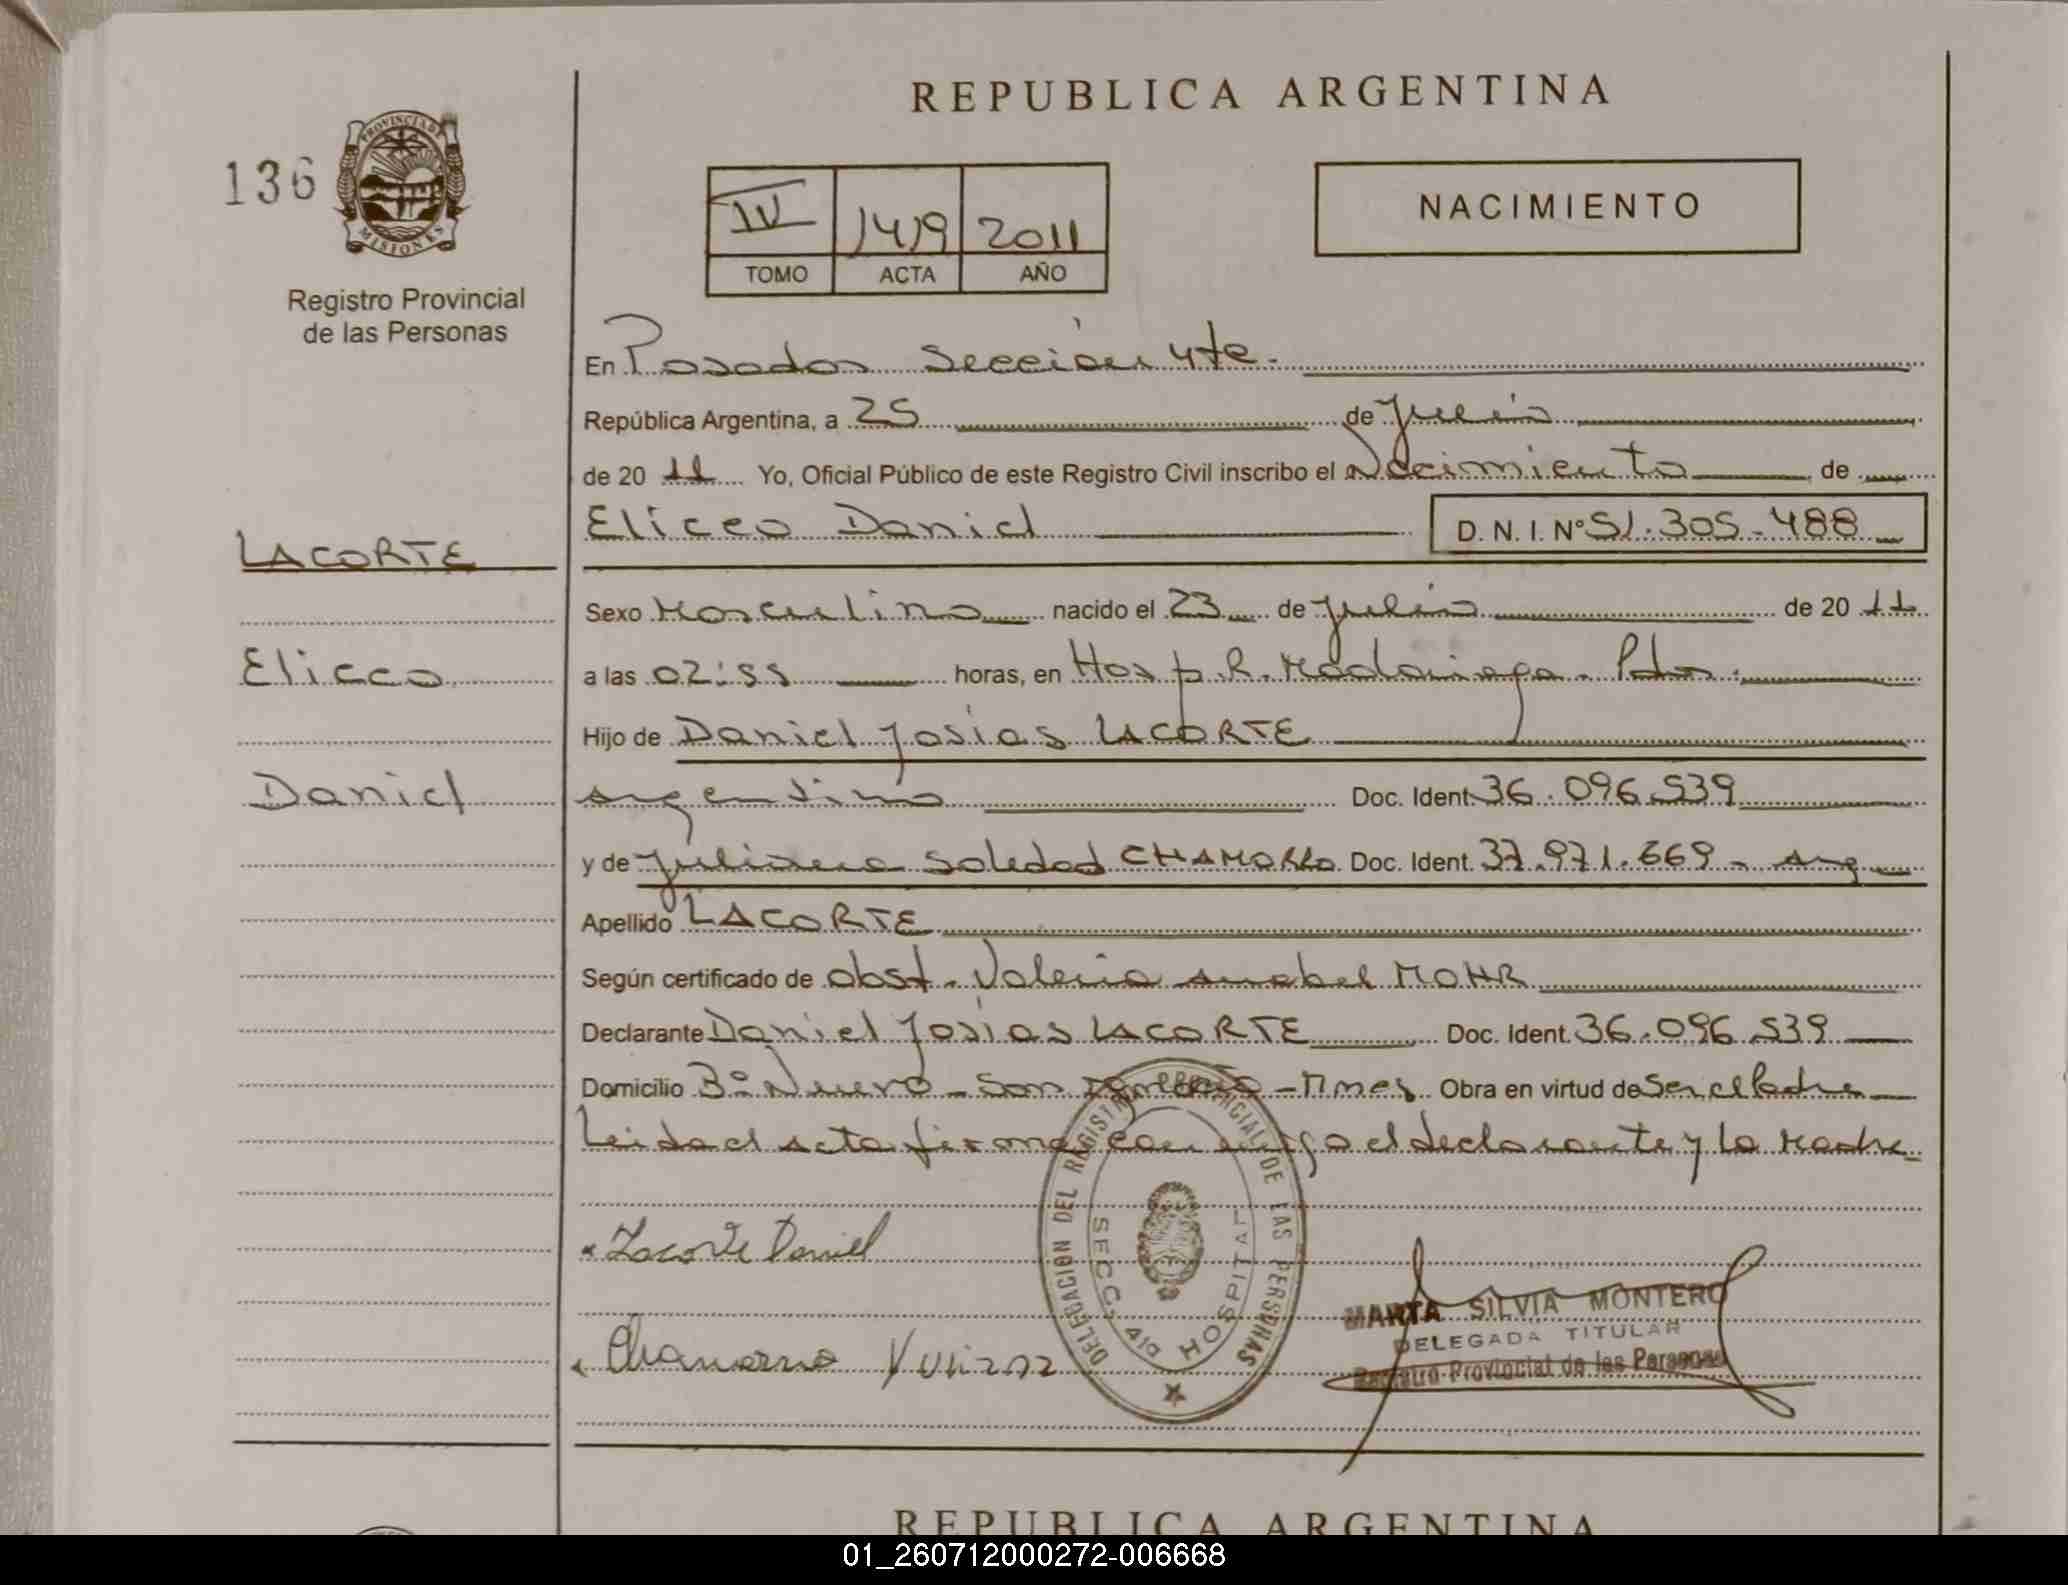 REPUBLICA ARGENTINA
136
PROVINCIA DE MISIONES
Registro Provincial
de las Personas
IV 1419 2011
TOMO ACTA AÑO
NACIMIENTO
En Posadas Sección 4ta.
República Argentina, a 25 de Julio
de 20 11 Yo, Oficial Público de este Registro Civil inscribo el Nacimiento de
Eliceo Daniel D. N. I. Nº 51.305.488
LACORTE
Eliceo
Daniel
Sexo Masculino nacido el 23 de Julio de 20 11
a las 02:55 horas, en Hosp. R. Madariaga. Pdas.
Hijo de Daniel Josías LACORTE
Argentino Doc. Ident. 36.096.539
y de Juliana Soledad CHAMORRO Doc. Ident. 37.971.669 - Arg
Apellido LACORTE
Según certificado de obst. Valeria Anabel MOHR
Declarante Daniel Josías LACORTE Doc. Ident. 36.096.539
Domicilio Bº Nuevo - San Ignacio - Mnes. Obra en virtud de Ser el Padre
Leida el Acta firma conmigo el declarante y la Madre
Lacorte Daniel
Chamorro
DELEGACION DEL REGISTRO PROVINCIAL DE LAS PERSONAS
SECC. 4ta HOSPITAL
MARTA SILVIA MONTERO
DELEGADA TITULAR
Registro Provincial de las Personas
REPUBLICA ARGENTINA
01_260712000272-006668